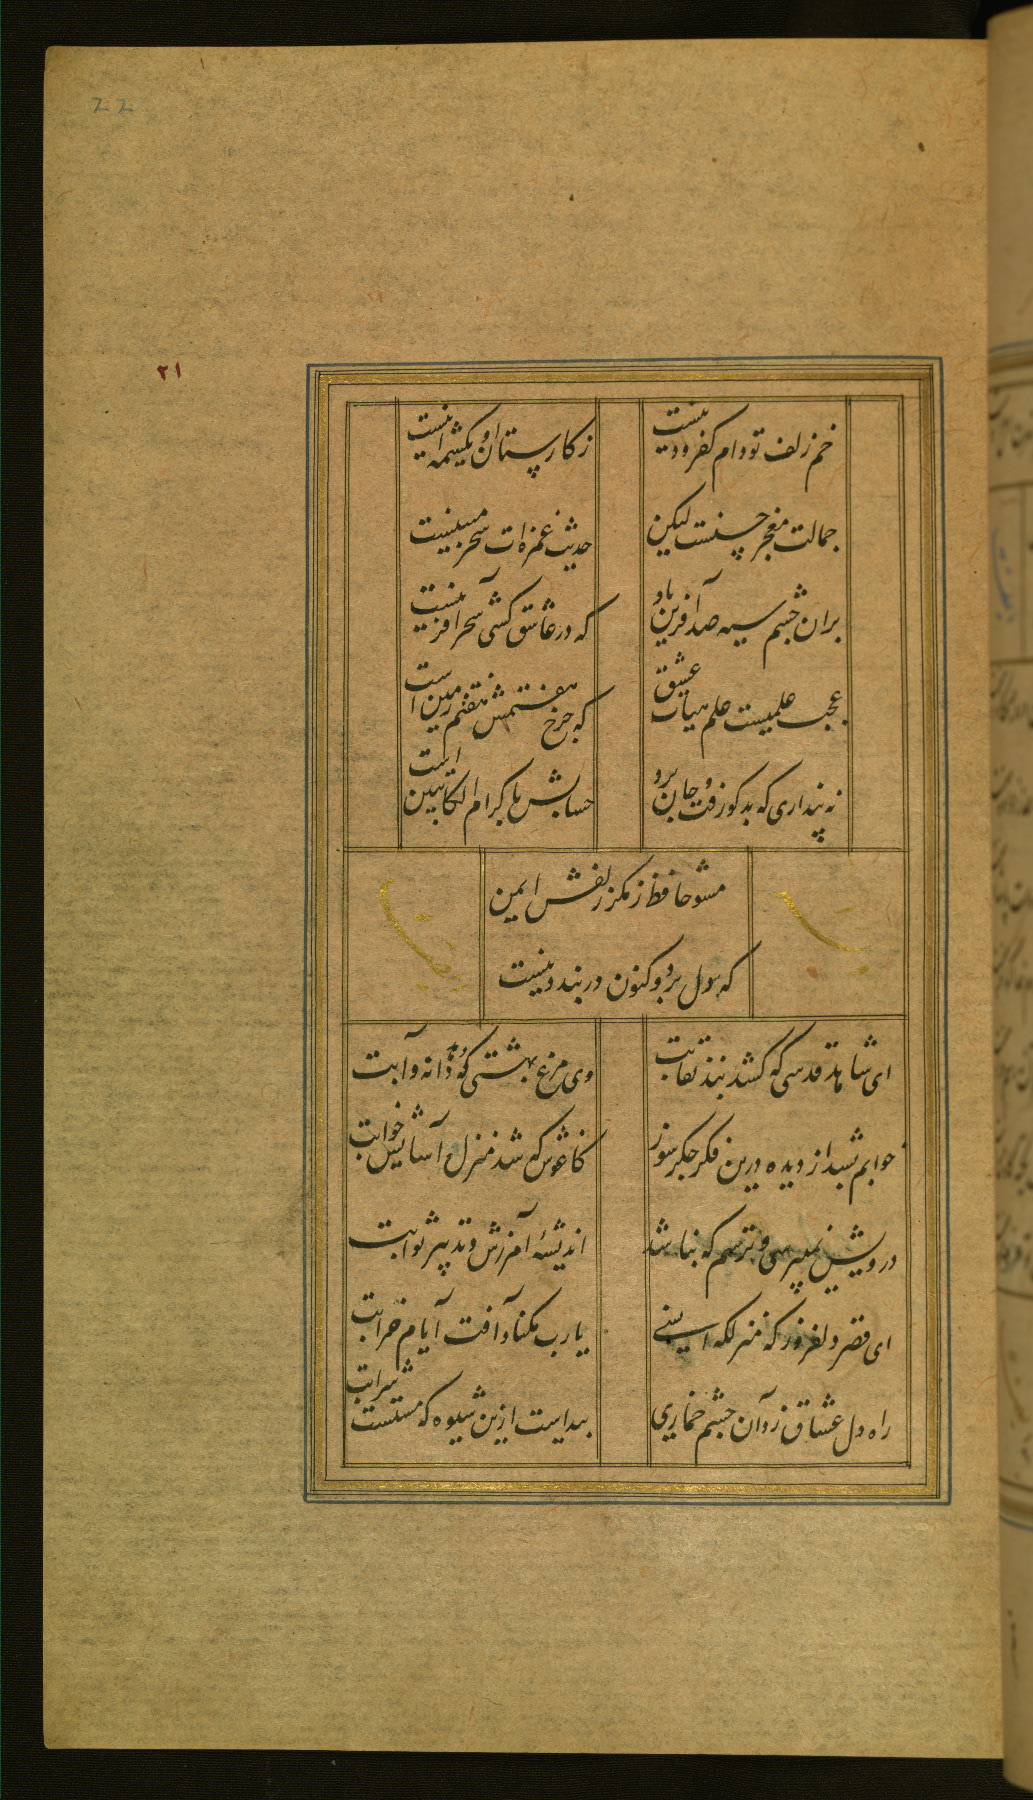 22
۲۱
خم زلف تو دام کفر و دینست
ز کارستان او یکشمه اینست
جمالت معجز حسنست لیکن
حدیث غمزه ات سحر مبینست
بران چشم سیه صد آفرین باد
که در عاشق کشی سحر آفرینست
عجب علمیست علم هیات عشق
که چرخ هفتمش هفتم زمین است
نه پنداری که بد کو رفت و جان برد
حسابش با کرام الکاتبین است
مشو حافظ ز مکر زلفش ایمن
که دل برد و کنون در بند دینست
ای شاهد قدسی که کشد بند نقابت
وی مرغ بهشتی که دهد دانه و آبت
خوابم بشد از دیده درین فکر جکر سوز
کاغوش که شد منزل آسایش خوابت
درویش نمیپرسی و ترسم که نباشد
اندیشهٔ آمرزش و تدبیر ثوابت
ای قصر دلفروز که منزلکه انسی
یارب مکناد آفت ایام خرابت
راه دل عشاق زد آن چشم خماری
پیداست ازین شیوه که مستست شرابت